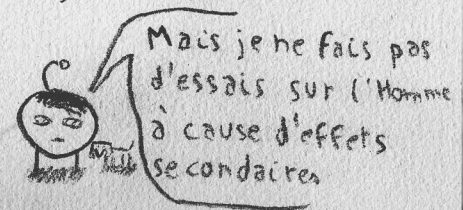 Mais je ne fais pas
d'essais sur l'Homme
à cause d'effets
secondaires